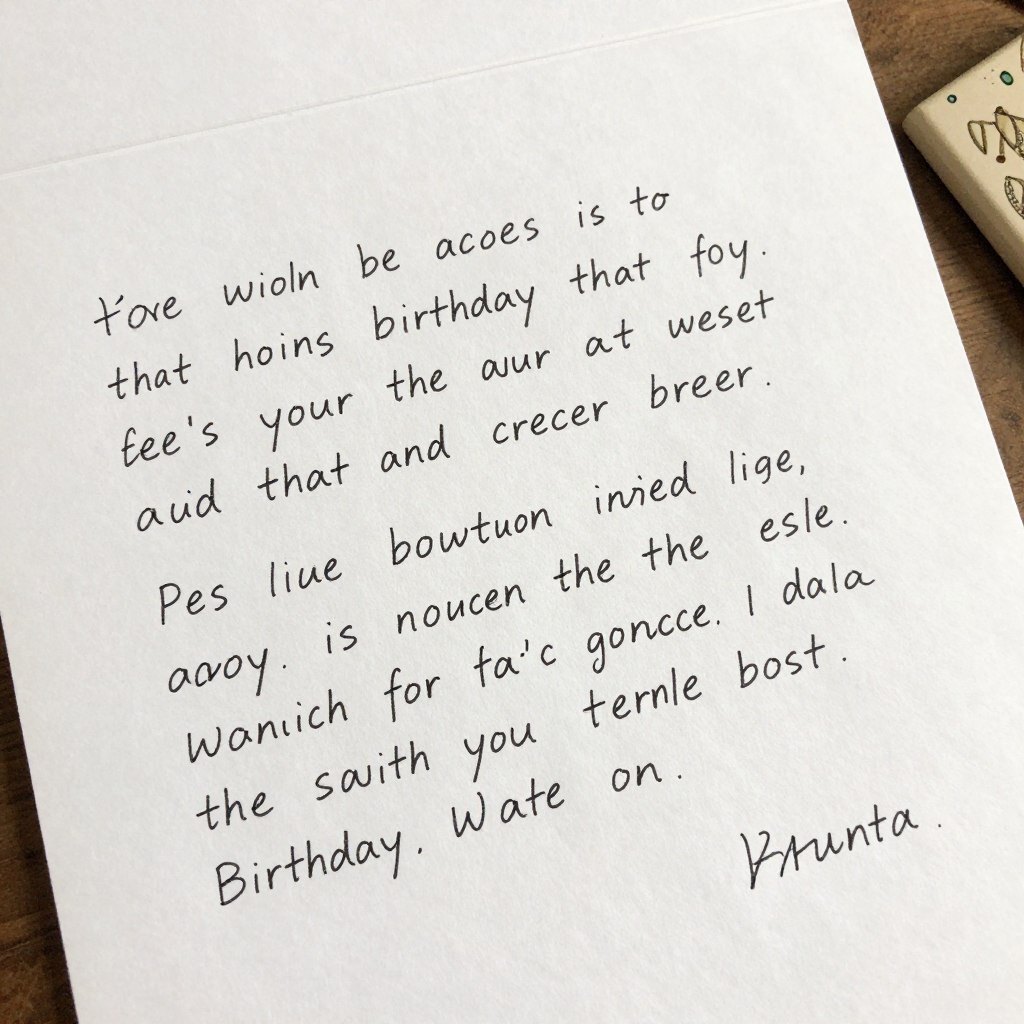 wioln be acoes is to
that hoins birthday that foy.
fee's your the at weset
that and crecer breer.
Pes liue bowtuon lige,
is noucen the the esle.
for fa'c goncce. I dala
the you ternle bost.
Birthday. Wate on.